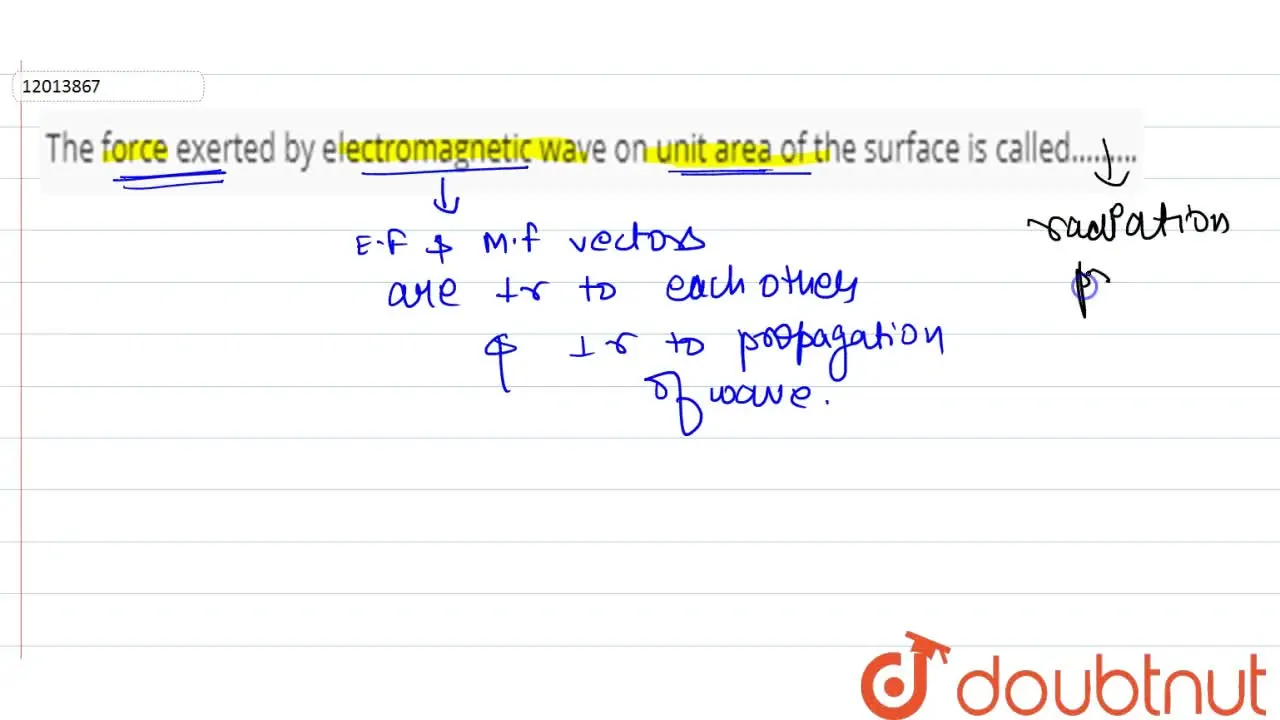 12013867
The force exerted by electromagnetic wave on unit area of the surface is called.........
radiation
E.F & M.f vectors
are ⊥r to each other
& ⊥r to propagation
of wave.
doubtnut